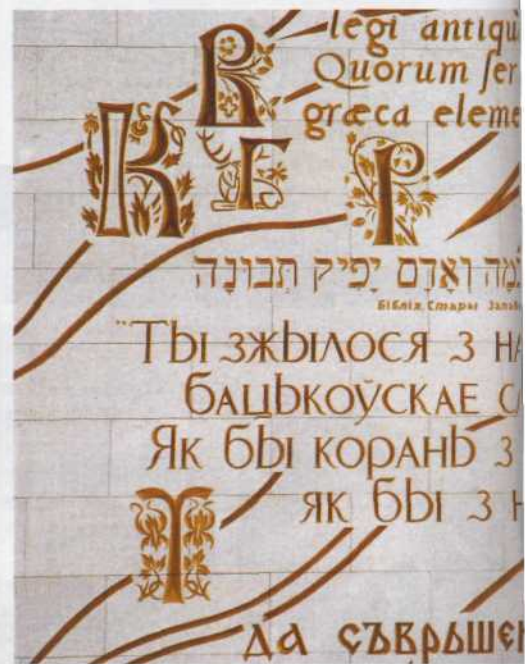 legi antiqu
Quorum ſer
græca eleme
R
К
Г
Р
מָה וְאָדָם יָפִיק תְּבוּנָה
Біблія. Стары Запа
"Ты зжылося з на
бацькоўскае с
Як бы корань з
як бы з н
Т
да съвръшен